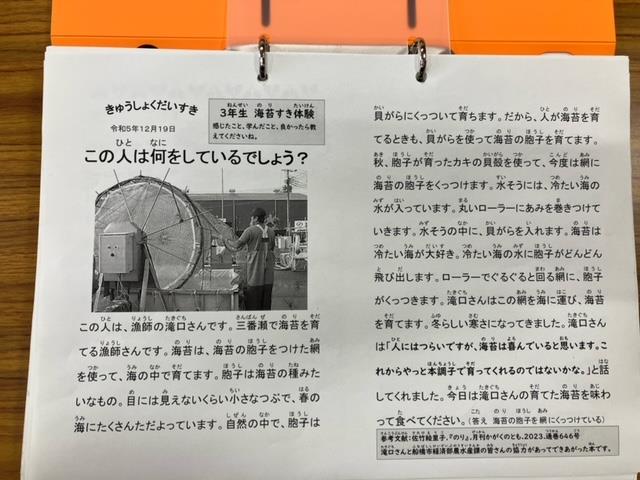 きゅうしょくだいすき
令和5年12月19日
3年生 海苔すき体験
感じたこと、学んだこと、良かったら教
えてくださいね。
この人は何をしているでしょう？
この人は、漁師の滝口さんです。三番瀬で海苔を育
てる漁師さんです。海苔は、海苔の胞子をつけた網
を使って、海の中で育てます。胞子は海苔の種みた
いなもの。目には見えないくらい小さなつぶで、春の
海にたくさんただよっています。自然の中で、胞子は
貝がらにくっついて育ちます。だから、人が海苔を育
てるときも、貝がらを使って海苔の胞子を育てます。
秋、胞子が育ったカキの貝殻を使って、今度は網に
海苔の胞子をくっつけます。水そうには、冷たい海の
水が入っています。丸いローラーにあみを巻きつけて
いきます。水そうの中に、貝がらを入れます。海苔は
冷たい海が大好き。冷たい海の水に胞子がどんどん
飛び出します。ローラーでぐるぐると回る網に、胞子
がくっつきます。滝口さんはこの網を海に運び、海苔
を育てます。冬らしい寒さになってきました。滝口さん
は「人にはつらいですが、海苔は喜んでいると思います。こ
れからやっと本調子で育ってくれるのではないかな。」と話
してくれました。今日は滝口さんの育てた海苔を味わ
って食べてください。（答え 海苔の胞子を網にくっつけている）
参考文献：佐竹絵里子，『のり』，月刊かがくのとも．2023．通巻646号
滝口さんと船橋市経済部農水産課の皆さんの協力があってできあがった本です。